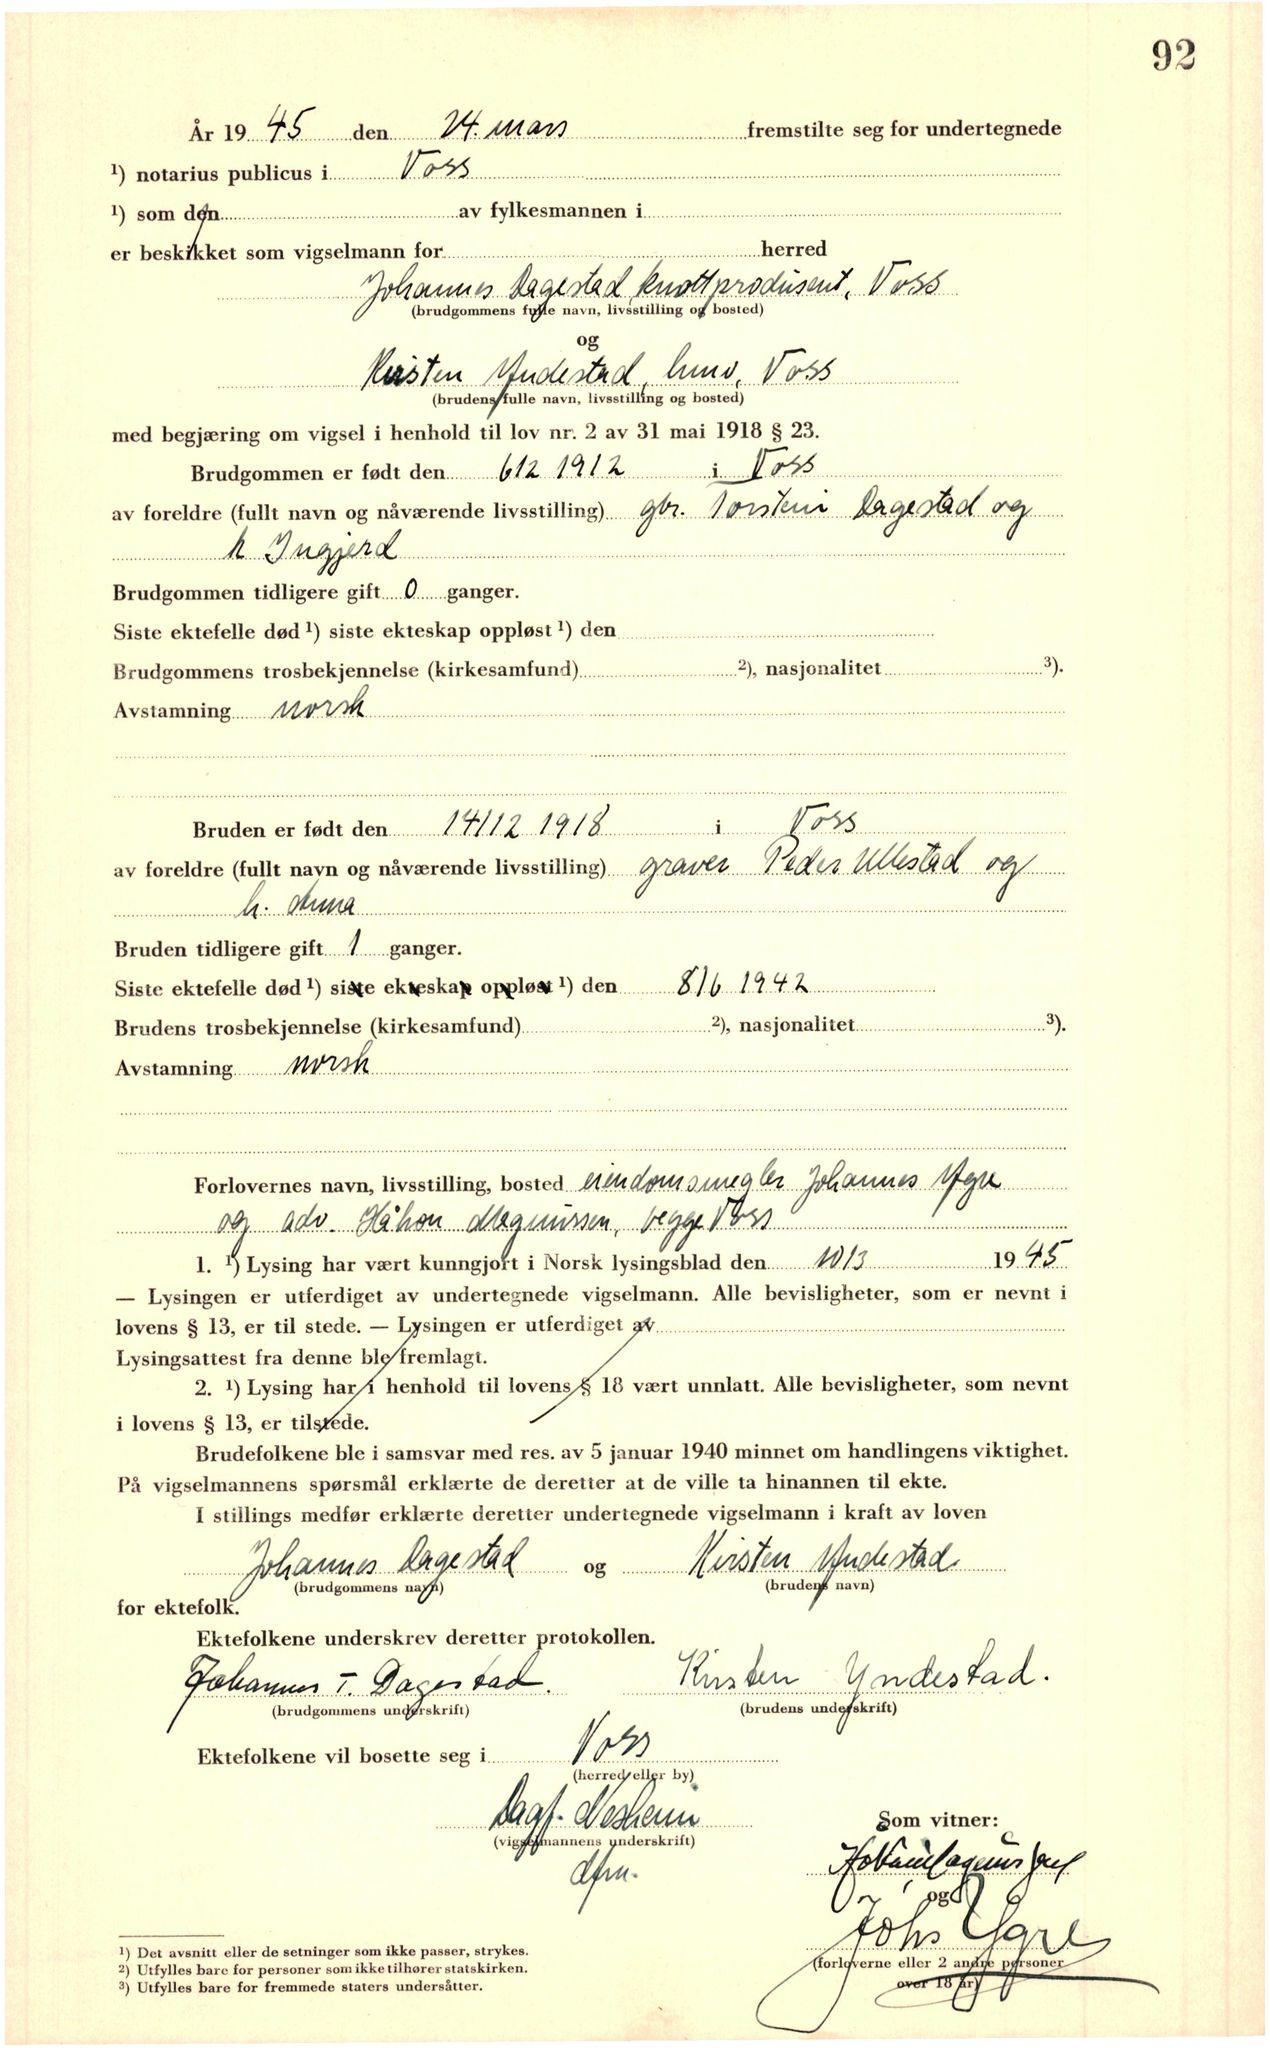 92
År 1945 den 24. mars fremstilte seg for undertegnede
¹) notarius publicus i Voss
¹) som den av fylkesmannen i
er beskikket som vigselmann for herred
Johannes Dagestad, knottprodusent, Voss
(brudgommens fulle navn, livsstilling og bosted)
og
Kirsten Yndestad, hmv, Voss
(brudens fulle navn, livsstilling og bosted)
med begjæring om vigsel i henhold til lov nr. 2 av 31 mai 1918 § 23.
Brudgommen er født den 6/2 1912 i Voss
av foreldre (fullt navn og nåværende livsstilling) gbr. Torstein Dagestad og
h Ingjerd
Brudgommen tidligere gift 0 ganger.
Siste ektefelle død ¹) siste ekteskap oppløst ¹) den
Brudgommens trosbekjennelse (kirkesamfund) ²), nasjonalitet ³).
Avstamning norsk
Bruden er født den 14/12 1918 i Voss
av foreldre (fullt navn og nåværende livsstilling) graver Peder Ullestad og
h. Anna
Bruden tidligere gift 1 ganger.
Siste ektefelle død ¹) siste ekteskap oppløst ¹) den 8/6 1942
Brudens trosbekjennelse (kirkesamfund) ²), nasjonalitet ³).
Avstamning norsk
Forlovernes navn, livsstilling, bosted eiendomsmegler Johannes Ygre
og adv. Håkon Magnussen, begge Voss
1. ¹) Lysing har vært kunngjort i Norsk lysingsblad den 10/3 1945
— Lysingen er utferdiget av undertegnede vigselmann. Alle bevisligheter, som er nevnt i
lovens § 13, er til stede. — Lysingen er utferdiget av
Lysingsattest fra denne ble fremlagt.
2. ¹) Lysing har i henhold til lovens § 18 vært unnlatt. Alle bevisligheter, som nevnt
i lovens § 13, er tilstede.
Brudefolkene ble i samsvar med res. av 5 januar 1940 minnet om handlingens viktighet.
På vigselmannens spørsmål erklærte de deretter at de ville ta hinannen til ekte.
I stillings medfør erklærte deretter undertegnede vigselmann i kraft av loven
Johannes Dagestad og Kirsten Yndestad
(brudgommens navn) (brudens navn)
for ektefolk.
Ektefolkene underskrev deretter protokollen.
Johannes T. Dagestad. Kirsten Yndestad.
(brudgommens underskrift) (brudens underskrift)
Ektefolkene vil bosette seg i Voss
(herred eller by)
Dagf. Nesheim
(vigselmannens underskrift)
dfm.
Som vitner:
Håkon Magnussen
og
Johs Ygre
(forloverne eller 2 andre personer
over 18 år)
¹) Det avsnitt eller de setninger som ikke passer, strykes.
²) Utfylles bare for personer som ikke tilhører statskirken.
³) Utfylles bare for fremmede staters undersåtter.